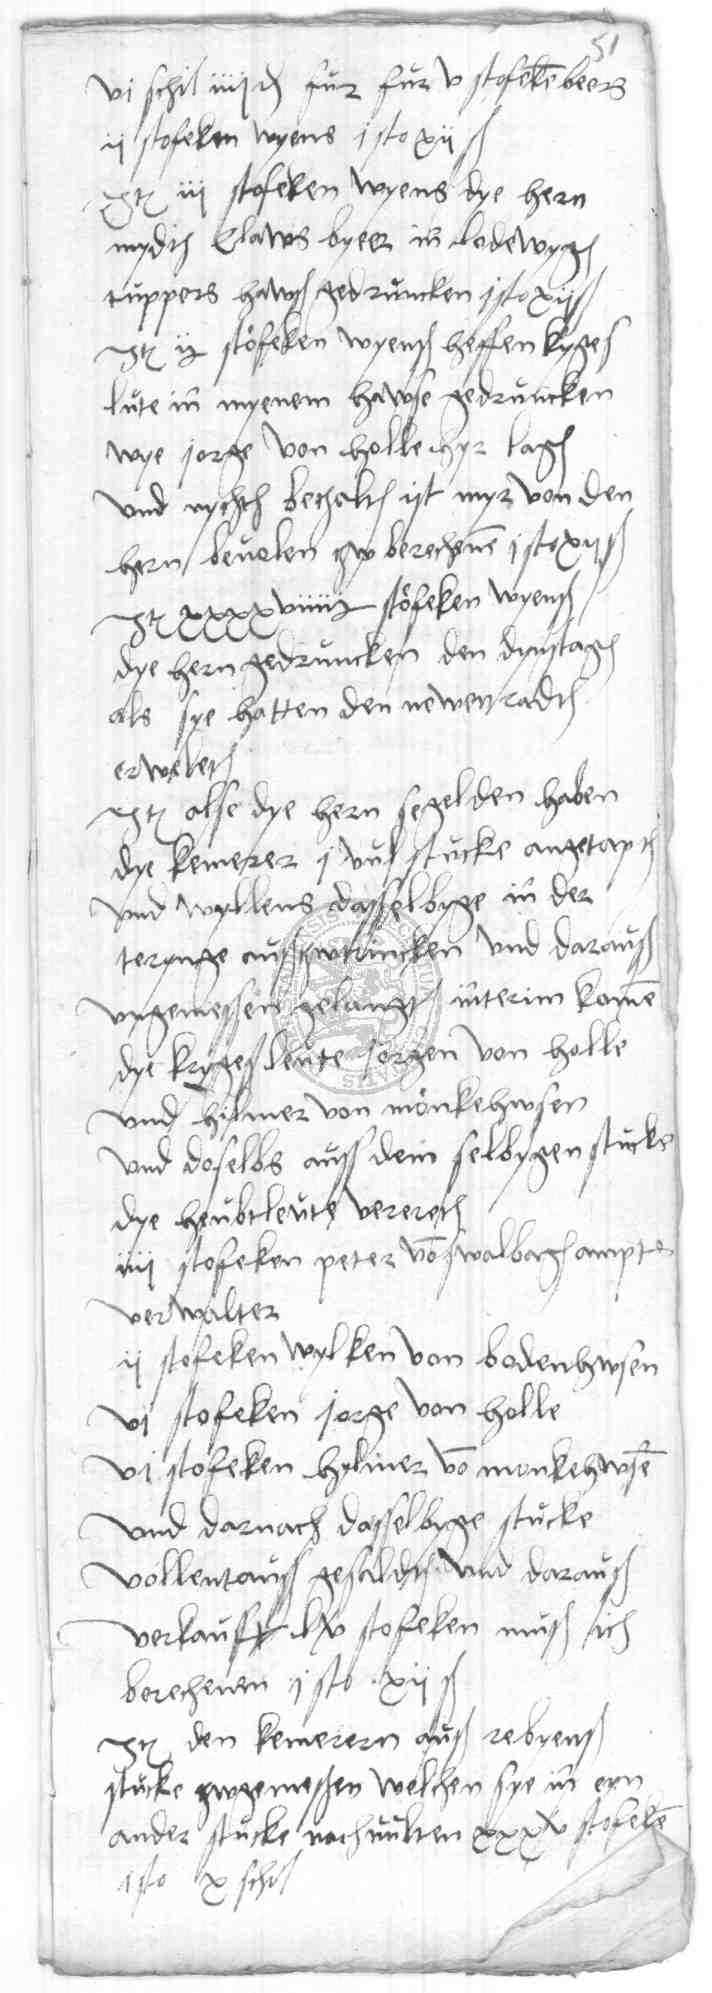 51
vi schil iiij d fur fur v stofeken beers
ij stofeken wyens j sto xij ß
Jtz iij stofeken wyens dye hern
mydth Claws byeer in lodewyges
tuppers hawß gedruncken j sto xij ß
Jtz ij stofeken wyenß heffen kryges
lute in myenem hawse gedruncken
wye jorge von holle hyr lagh
vnd nychth beczalth ist myr von den
hern beuolen zw berechenen j sto xij ß
Jtz xxxxviiij stofeken wyenß
dye hern gedruncken den dynstagh
als sye hatten den newen radth
erweleth
Jtz alse dye hern segelden haben
dye kemerer j vul stucke angetapth
vnd wyllens dasselbyge in der
terynge auß zwtrincken vnd darauß
vngemessen gelangth interim komen
dye krygeßleute jorgen von holle
vnd hilmer von mönkehwsen
vnd doselbs auß dem selbygen stucke
dye heubtleute vererth
iiij stofeken peter von swalbach ampte
verwalter
ij stofeken wylken von bodenhwsen
vi stofeken jorge von holle
vi stofeken hylmer von monkehwsen
vnd darnach dasselbyge stucke
vollentauß gefuldth vnd darauß
verkaufft lv stofeken muß ich
berechenen j sto xij ß
Jtz den kemerern auß rebyenß
stucke zwgemeßen welchen sye in eyn
ander stucke nachuulten xxxv stofeken
j sto x schil